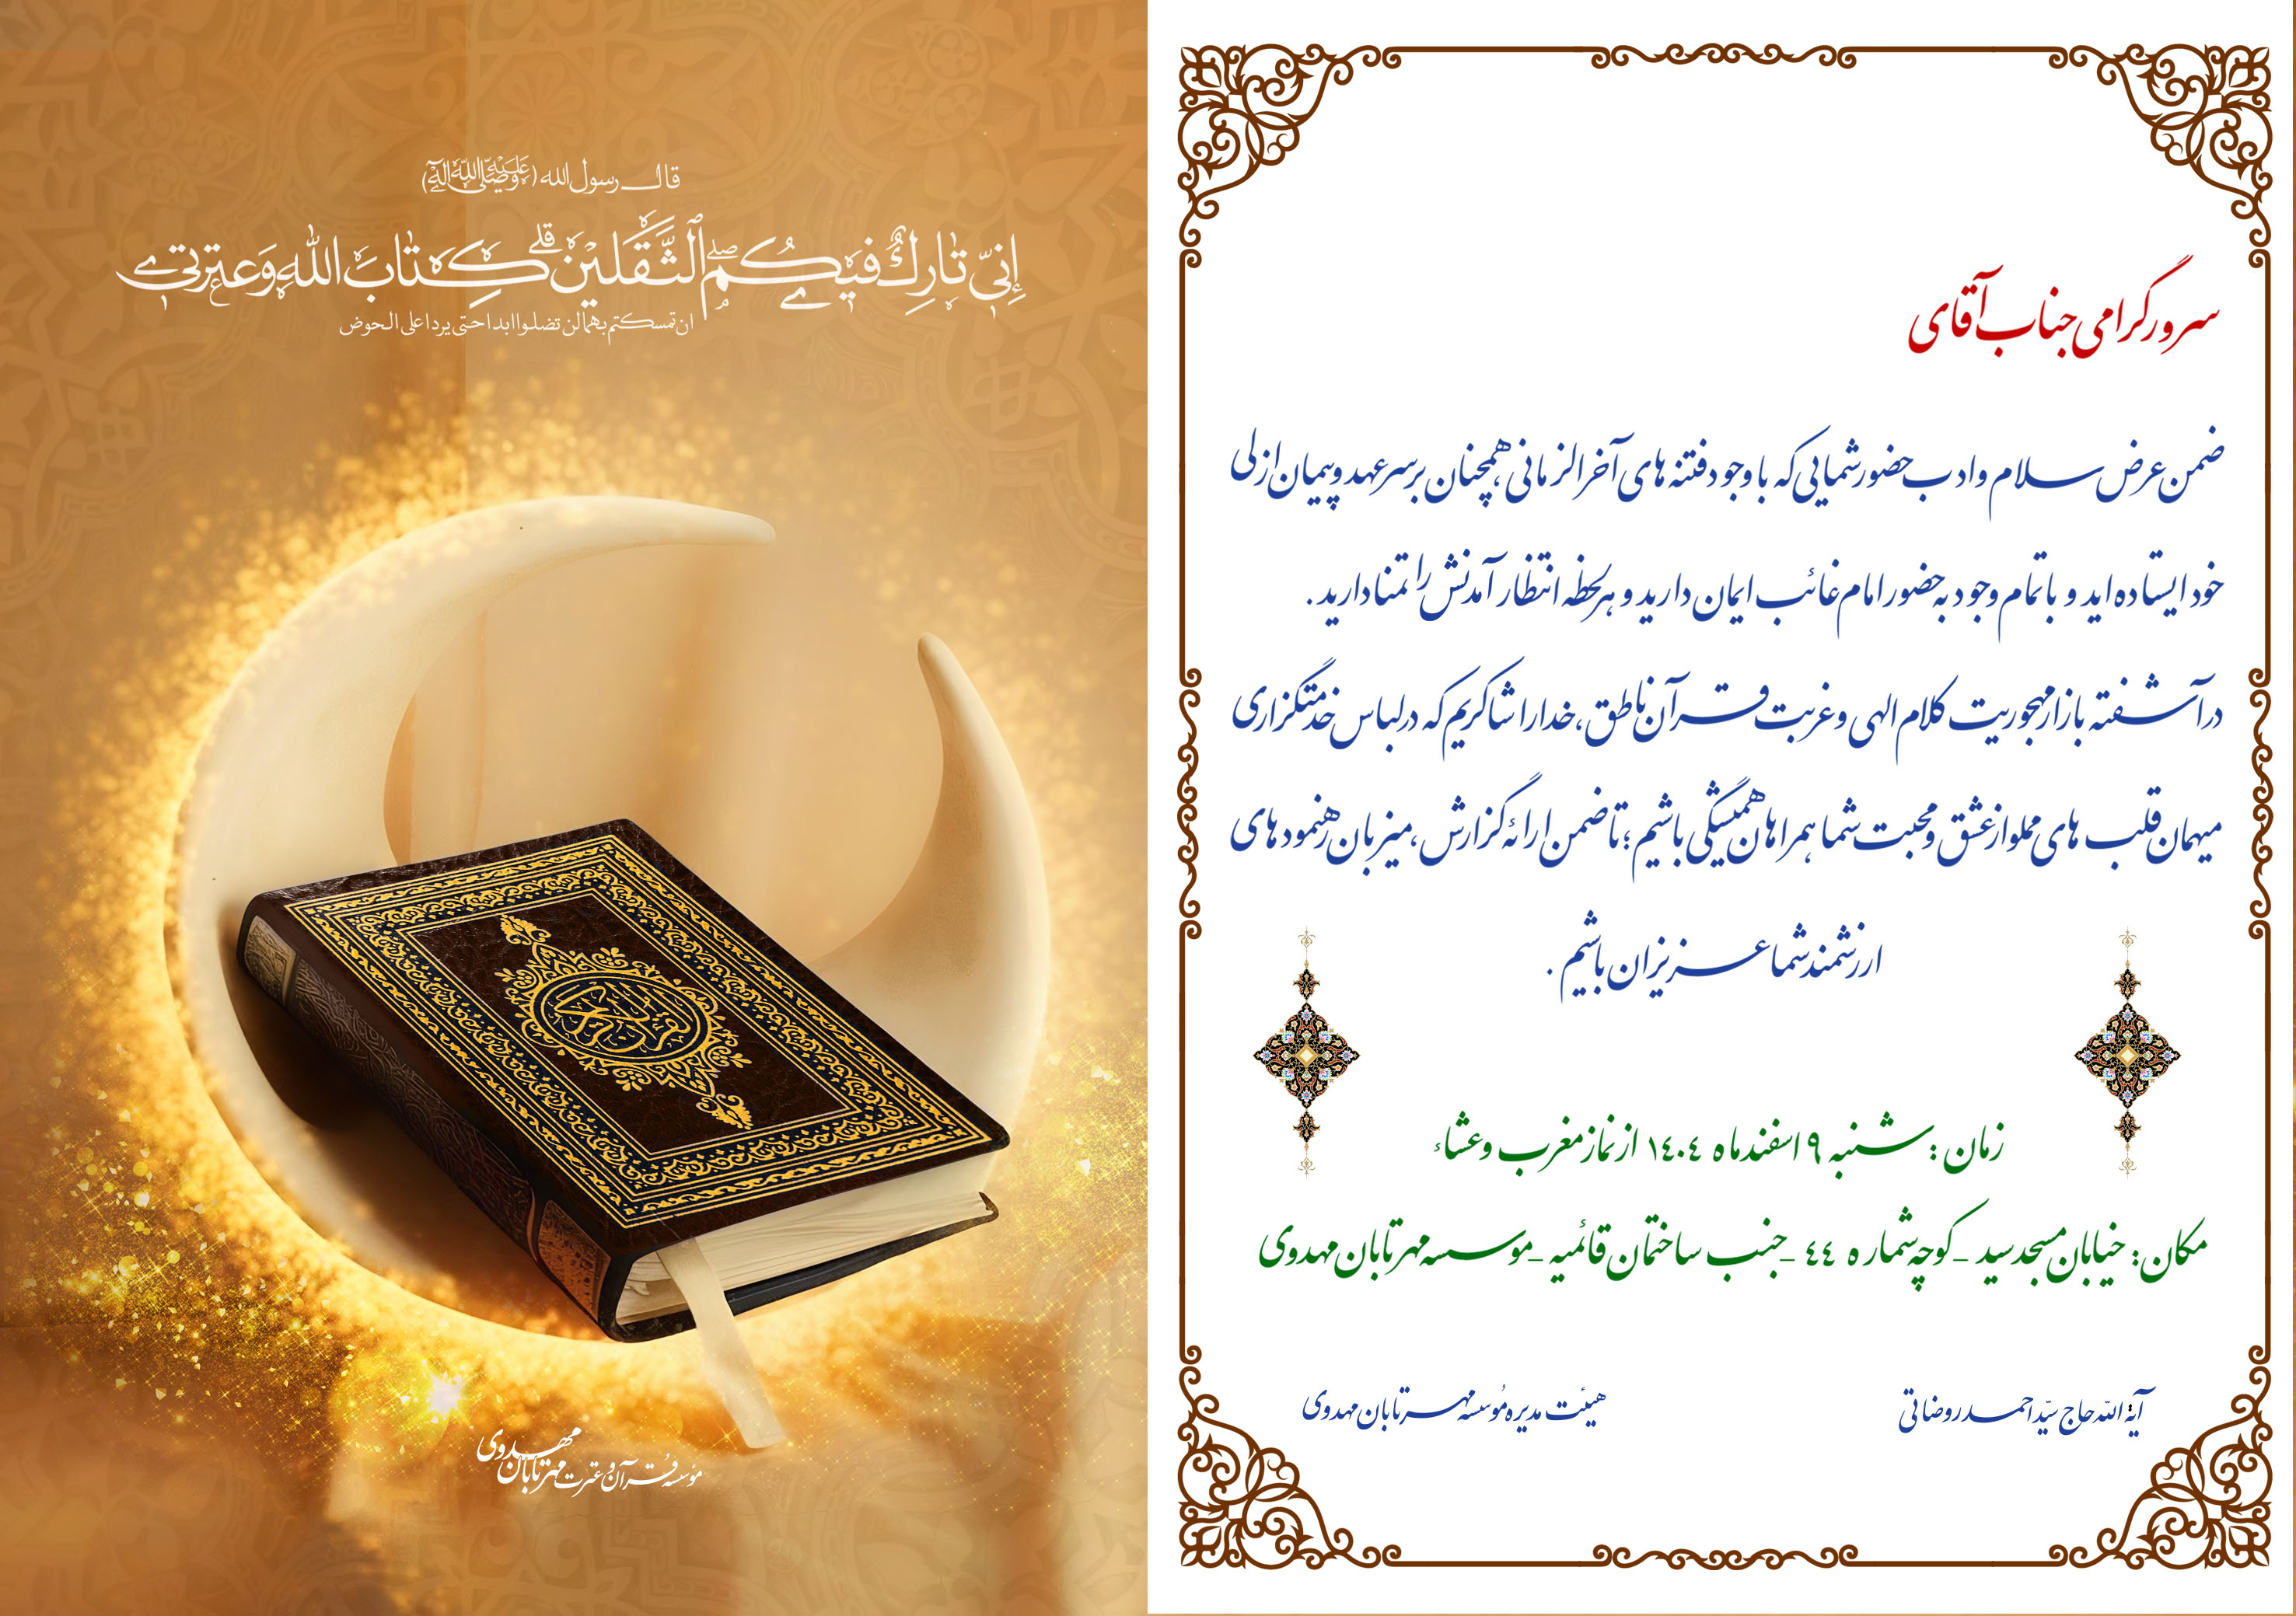 قال رسول الله (صلی الله علیه وآله)
إِنِّي تَارِكٌ فِيكُمُ الثَّقَلَيْنِ كِتَابَ اللَّهِ وَعِتْرَتِي
ان تمسکتم بهما لن تضلوا ابدا حتی یردا علی الحوض
القرآن الکریم
موسسه قرآن و عترت مهر تابان مهدوی
سرور گرامی جناب آقای
ضمن عرض سلام و ادب حضور شمایی که با وجود فتنه های آخرالزمانی، همچنان بر سر عهد و پیمان ازلی
خود ایستاده اید و با تمام وجود به حضور امام غائب ایمان دارید و هر لحظه انتظار آمدنش را تمنا دارید.
در آشفته بازار مهجوریت کلام الهی و غربت قرآن ناطق، خدا را شاکریم که در لباس خدمتگزاری
میهمان قلب های مملو از عشق و محبت شما همراهان همیشگی باشیم؛ تا ضمن ارائه گزارش، میزبان رهنمودهای
ارزشمند شما عزیزان باشیم.
زمان: شنبه ۹ اسفند ماه ۱٤۰٤ از نماز مغرب و عشاء
مکان: خیابان مسجد سید _ کوچه شماره ٤٤ _ جنب ساختمان قائمیه _ موسسه مهر تابان مهدوی
آیة الله حاج سیّد احمد روضاتی
هیئت مدیره مؤسسه مهر تابان مهدوی